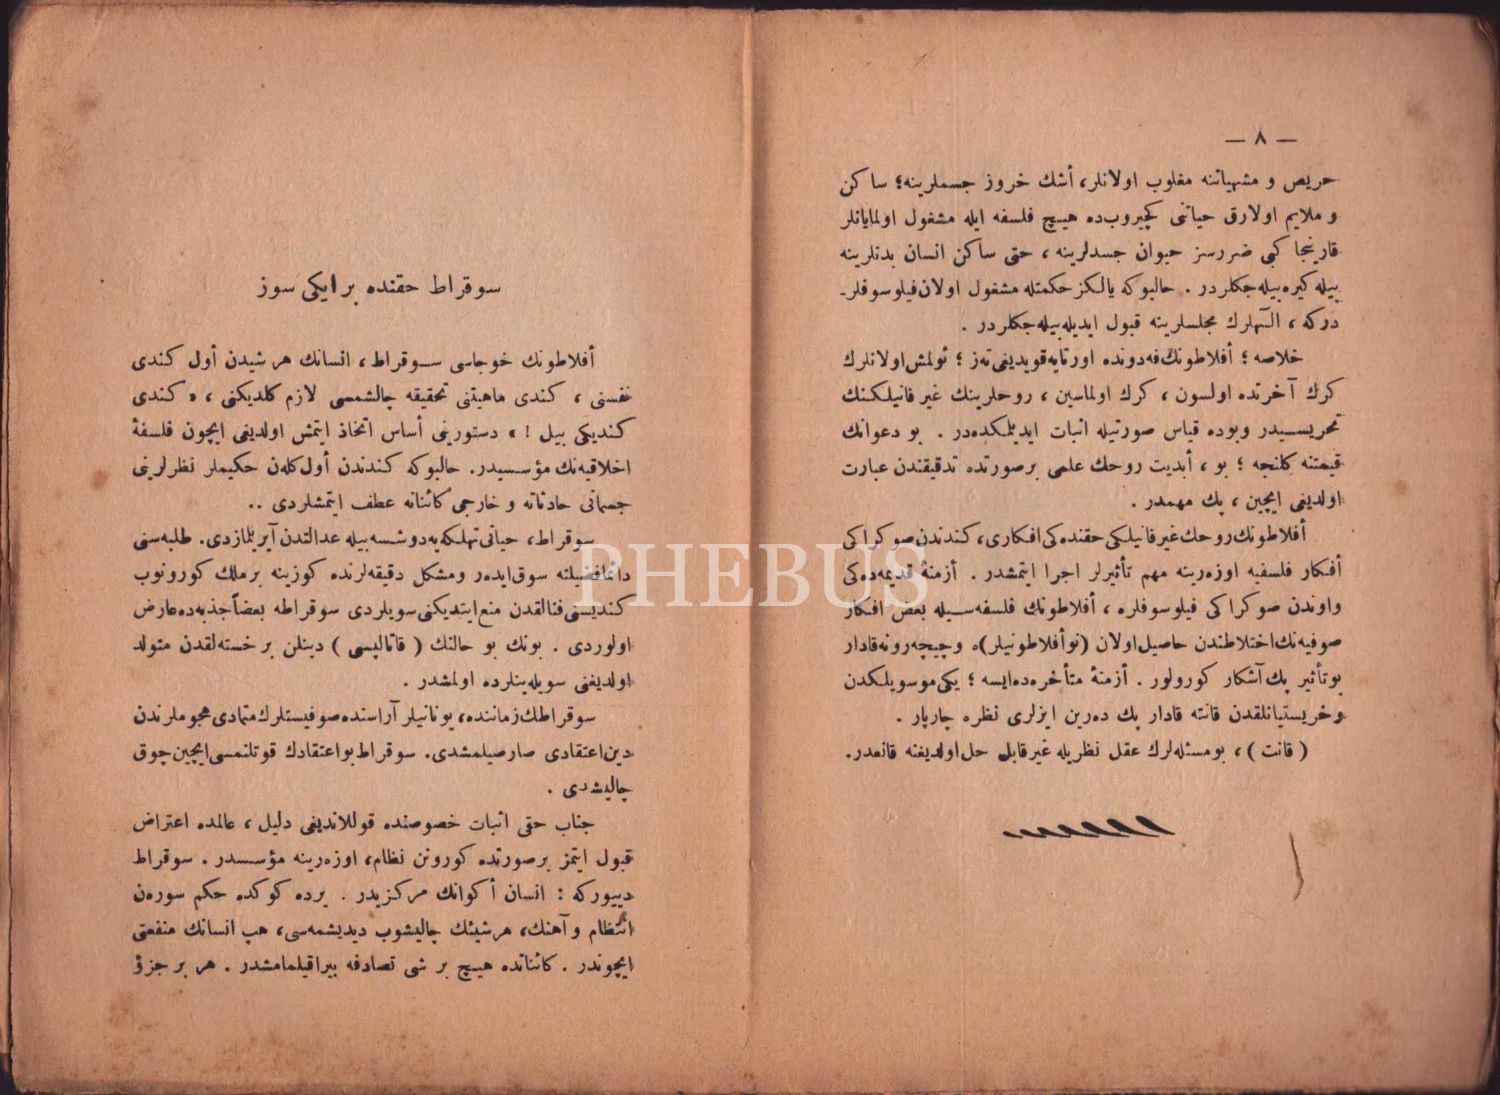 — ٨ —
حريص و مشهياتنه مغلوب اولانلر، أشك خروز جسملرينه؛ ساكن
و ملايم اولارق حياتنى كچيروب‌ده هيچ فلسفه ايله مشغول اولمايانلر
قارينجا كبى ضررسز حيوان جسدلرينه ، حتى ساكن انسان بدنلرينه
بيله كيره‌بيله‌جكلردر . حالبوكه يالكز حكمتله مشغول اولان فيلوسوفلر-
دركه ، آلهلرك مجلسلرينه قبول ايديله‌بيله‌جكلردر .
خلاصه ؛ أفلاطونك فه‌دونده اورتايه قويديغى ته‌ز ؛ ئولمش اولانلرك
كرك آخرتده اولسون ، كرك اولماسين ، روحلرينك غير فانيلكنك
تحريسيدر وبوده قياس صورتيله اثبات ايديلمكده‌در . بو دعوانك
قيمتنه كلنجه ؛ بو ، أبديت روحك علمى برصورتده تدقيقندن عبارت
اولديغى ايچين ، پك مهمدر .
أفلاطونك روحك غير فانيلكى حقنده‌كى افكارى، كندندن صوكراكى
أفكار فلسفيه اوزه‌رينه مهم تأثيرلر اجرا ايتمشدر . أزمنۀ قديمه‌ده‌كى
واوندن صوكراكى فيلوسوفلره ، أفلاطونك فلسفه‌سيله بعض افكار
صوفيه‌نك اختلاطندن حاصيل اولان (نوأفلاطونيلر)ه وچيچه‌رونه قادار
بوتأثير پك آشكار كورولور . أزمنۀ متأخره‌ده‌ايسه ؛ يكى موسويلكدن
وخريستيانلقدن قانته قادار پك ده‌رين ايزلرى نظره چارپار .
( قانت ) ، بومسئله‌لرك عقل نظريله غير قابل حل اولديغنه قانعدر.
سوقراط حقنده بر ايكى سوز
أفلاطونك خوجاسى سوقراط ، انسانك هر شيدن أول كندى
نفسنى ، كندى ماهيتنى تحقيقه چالشمسى لازم كلديكنى ، « كندى
كنديكى بيل ! » دستورينى أساس اتخاذ ايتمش اولديغى ايچون فلسفۀ
اخلاقيه‌نك مؤسسيدر. حالبوكه كندندن أول كلن حكيملر نظرلرينى
جسمانى حادثاته و خارجى كائناته عطف ايتمشلردى ..
سوقراط، حياتى تهلكه‌يه دوشسه بيله عدالتدن آيريلمازدى. طلبه‌سنى
دائما فضيلته سوق ايده‌ر ومشكل دقيقه‌لرنده كوزينه بر ملك كورونوب
كنديسنى فنالقدن منع ايتديكنى سويلردى سوقراطه بعضاً جذبه‌ده عارض
اولوردى . بونك بو حالنك ( قاتالپسى ) دينلن بر خسته‌لقدن متولد
اولديغنى سويله‌ينلرده اولمشدر .
سوقراطك زماننده، يونانيلر آراسنده صوفيستلرك متمادى هجوملرندن
دين اعتقادى صارصيلمشدى. سوقراط بو اعتقادك قوتلنمسى ايچين چوق
چاليشدى .
جناب حقى اثبات خصوصنده قوللانديغى دليل ، عالمده اعتراض
قبول ايتمز برصورتده كورونن نظام، اوزه‌رينه مؤسسدر . سوقراط
دييوركه : انسان أكوانك مركزيدر . يرده كوكده حكم سوره‌ن
انتظام و آهنك، هرشيئك چاليشوب ديديشمه‌سى، هپ انسانك منفعتى
ايچوندر . كائناتده هيچ بر شى تصادفه بيراقيلمامشدر . هر بر جزؤ
PHEBUS